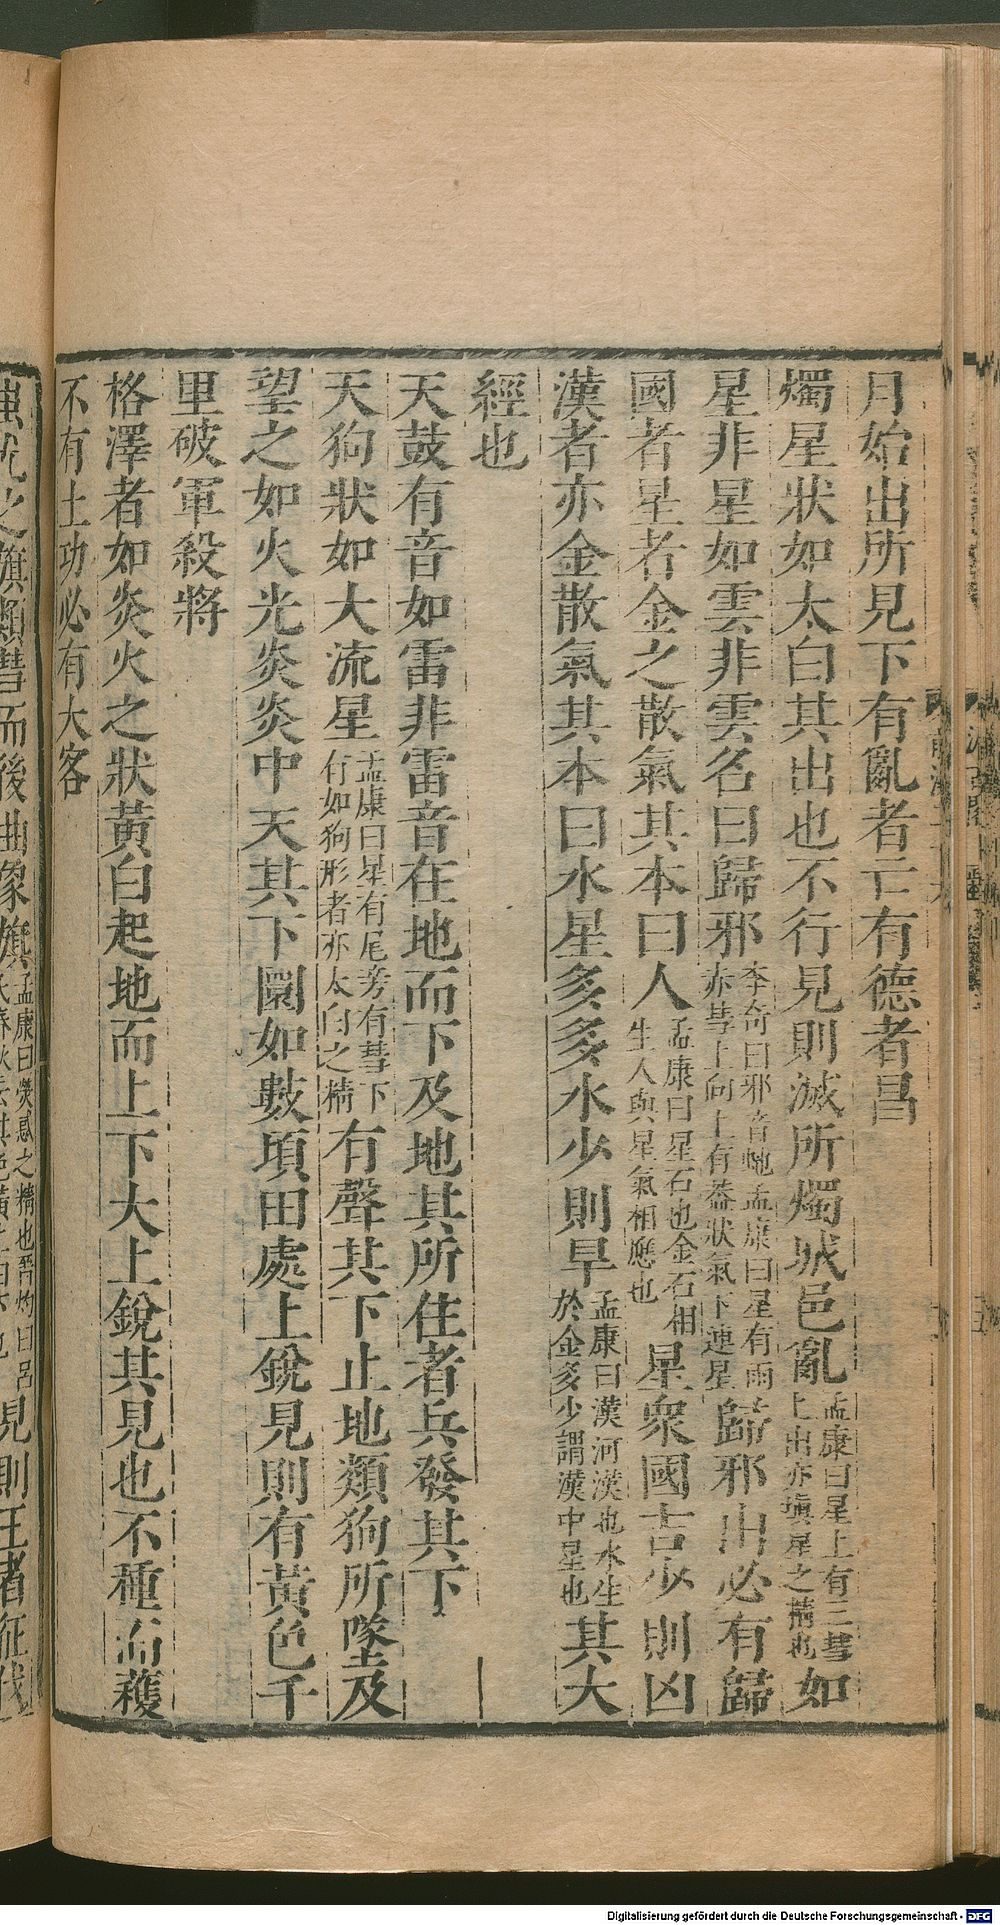 月始出所見下有亂者亡有德者昌
燭星狀如太白其出也不行見則滅所燭城邑亂孟康曰星上有三彗上出亦塡星之精也如
星非星如雲非雲名曰歸邪李奇曰邪音虵孟康曰星有兩赤彗上向上有葢狀氣下連星歸邪出必有歸
國者星者金之散氣其本曰人孟康曰星石也金石相生人與星氣相應也星衆國吉少則凶
漢者亦金散氣其本曰水星多多水少則旱孟康曰漢河漢也水生於金多少謂漢中星也其大
經也
天鼓有音如雷非雷音在地而下及地其所住者兵發其下
天狗狀如大流星孟康曰星有尾旁有彗下有如狗形者亦太白之精有聲其下止地類狗所墜及
望之如火光炎炎中天其下圜如數頃田處上銳見則有黃色千
里破軍殺將
格澤者如炎火之狀黃白起地而上下大上銳其見也不種而穫
不有土功必有大客
蚩尤之旗類彗而後曲象旗孟康曰熒惑之精也晉灼曰呂氏春秋云其色黃上白下也見則王者征伐
Digitalisierung gefördert durch die Deutsche Forschungsgemeinschaft - DFG